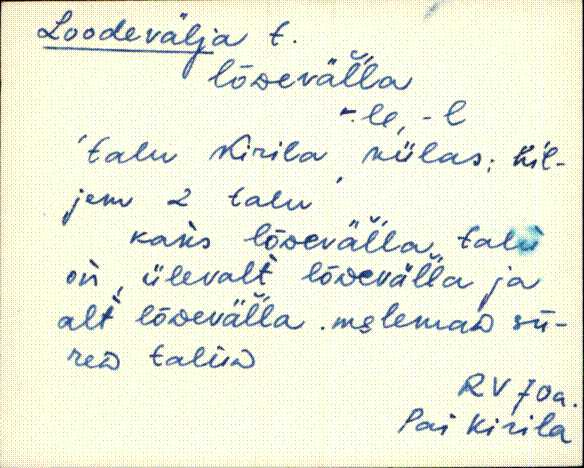 Loodevälja t.
lõᴅeväĺĺa
-le, -l
'talu Kirila külas; hil-
jem 2 talu'
kaks lõᴅeväĺĺa talu
on, ülevalt lõᴅeväĺĺa ja
alt lõᴅeväĺĺa. melemaᴅ sū-
reᴅ taluᴅ
RV 70a.
Pai Kirila